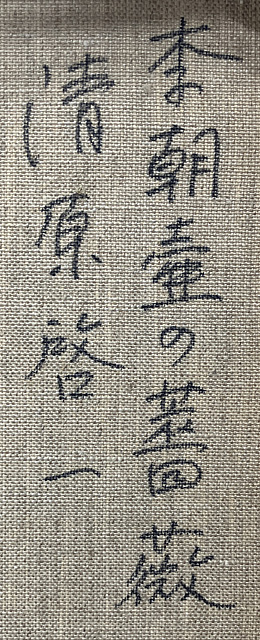 李朝壺の薔薇
清原啓一